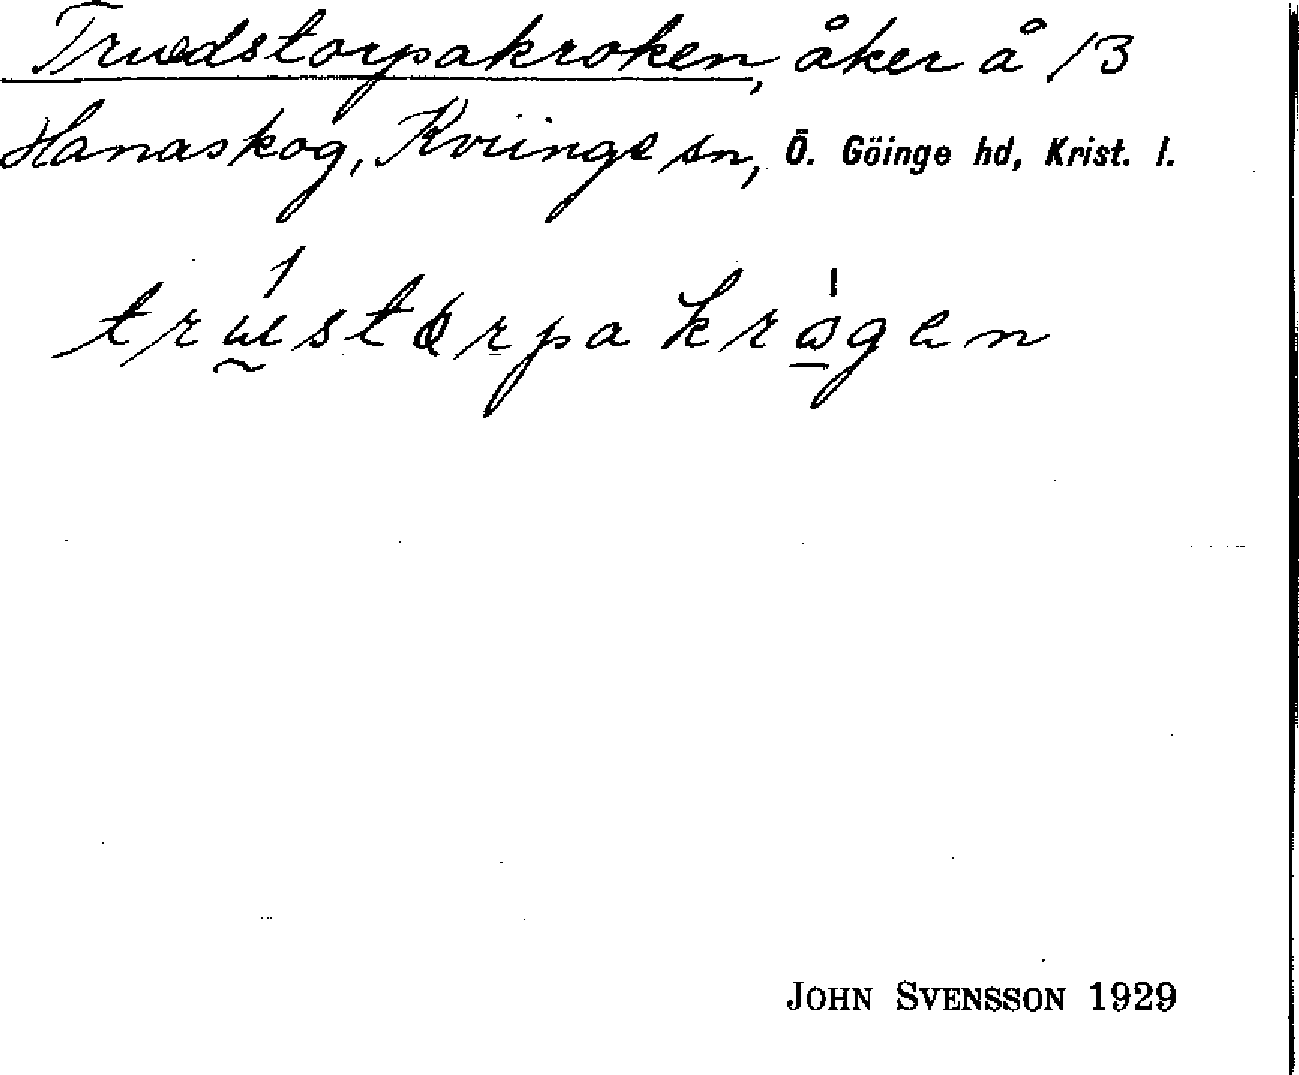 Truedstorpakroken, åker å 13
Hanaskog, Kviinge sn, Ö. Göinge hd, Krist. l.
JOHN SVENSSON 1929